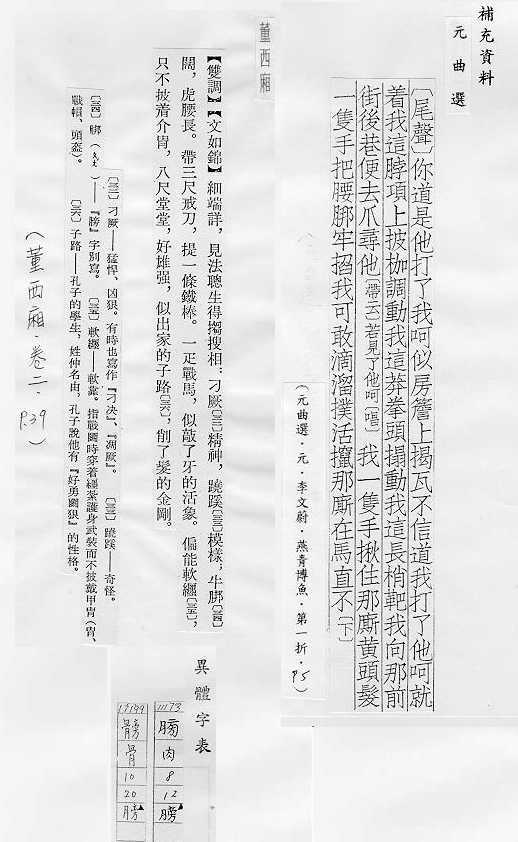 補充資料
元曲選
〔尾聲〕你道是他打了我呵似房簷上揭瓦不信道我打了他呵就
着我這脖項上披枷調動我這莽拳頭搨動我這長梢靶我向那前
街後巷便去爪尋他〔帶云〕若見了他呵〔唱〕我一雙手揪住那廝黃頭髮
一隻手把腰脚牢搯我可敢滴溜撲活攛那廝在馬直下〔下〕
(元曲選·元·李文蔚·燕青博魚·第一折·P.5)
董西廂
【雙調】【文如錦】細端詳，見法聰生得搊搜相：刁厥〔三二〕精神，蹺蹊〔三三〕模樣，牛膀〔三四〕
闊，虎腰長。帶三尺戒刀，提一條鐵棒。一疋戰馬，似敲了牙的活象。偏能軟纏〔三五〕，
只不披着介冑，八尺堂堂，好雄强，似出家的子路〔三六〕，削了髮的金剛。
〔三二〕刁厥——猛悍、凶狠。有時也寫作『刁决』、『凋厥』。 〔三三〕蹺蹊——奇怪。
〔三四〕䏶(ㄆㄤ)——『膀』字別寫。 〔三五〕軟纏——軟靠。指戰鬪時穿着纏紮護身武裝而不披戴甲冑(冑、
戰帽、頭盔)。 〔三六〕子路——孔子的學生，姓仲名由，孔子說他有『好勇鬬狠』的性格。
(董西廂·卷二·P.39)
異體字表
11173
肉
8
12
膀
15199
髈
骨
10
20
膀